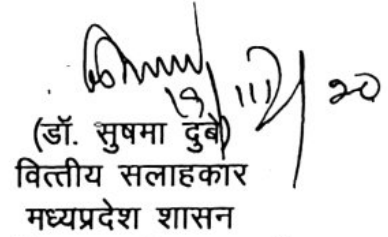 19/11/20
(डॉ. सुषमा दुबे)
वित्तीय सलाहकार
मध्यप्रदेश शासन